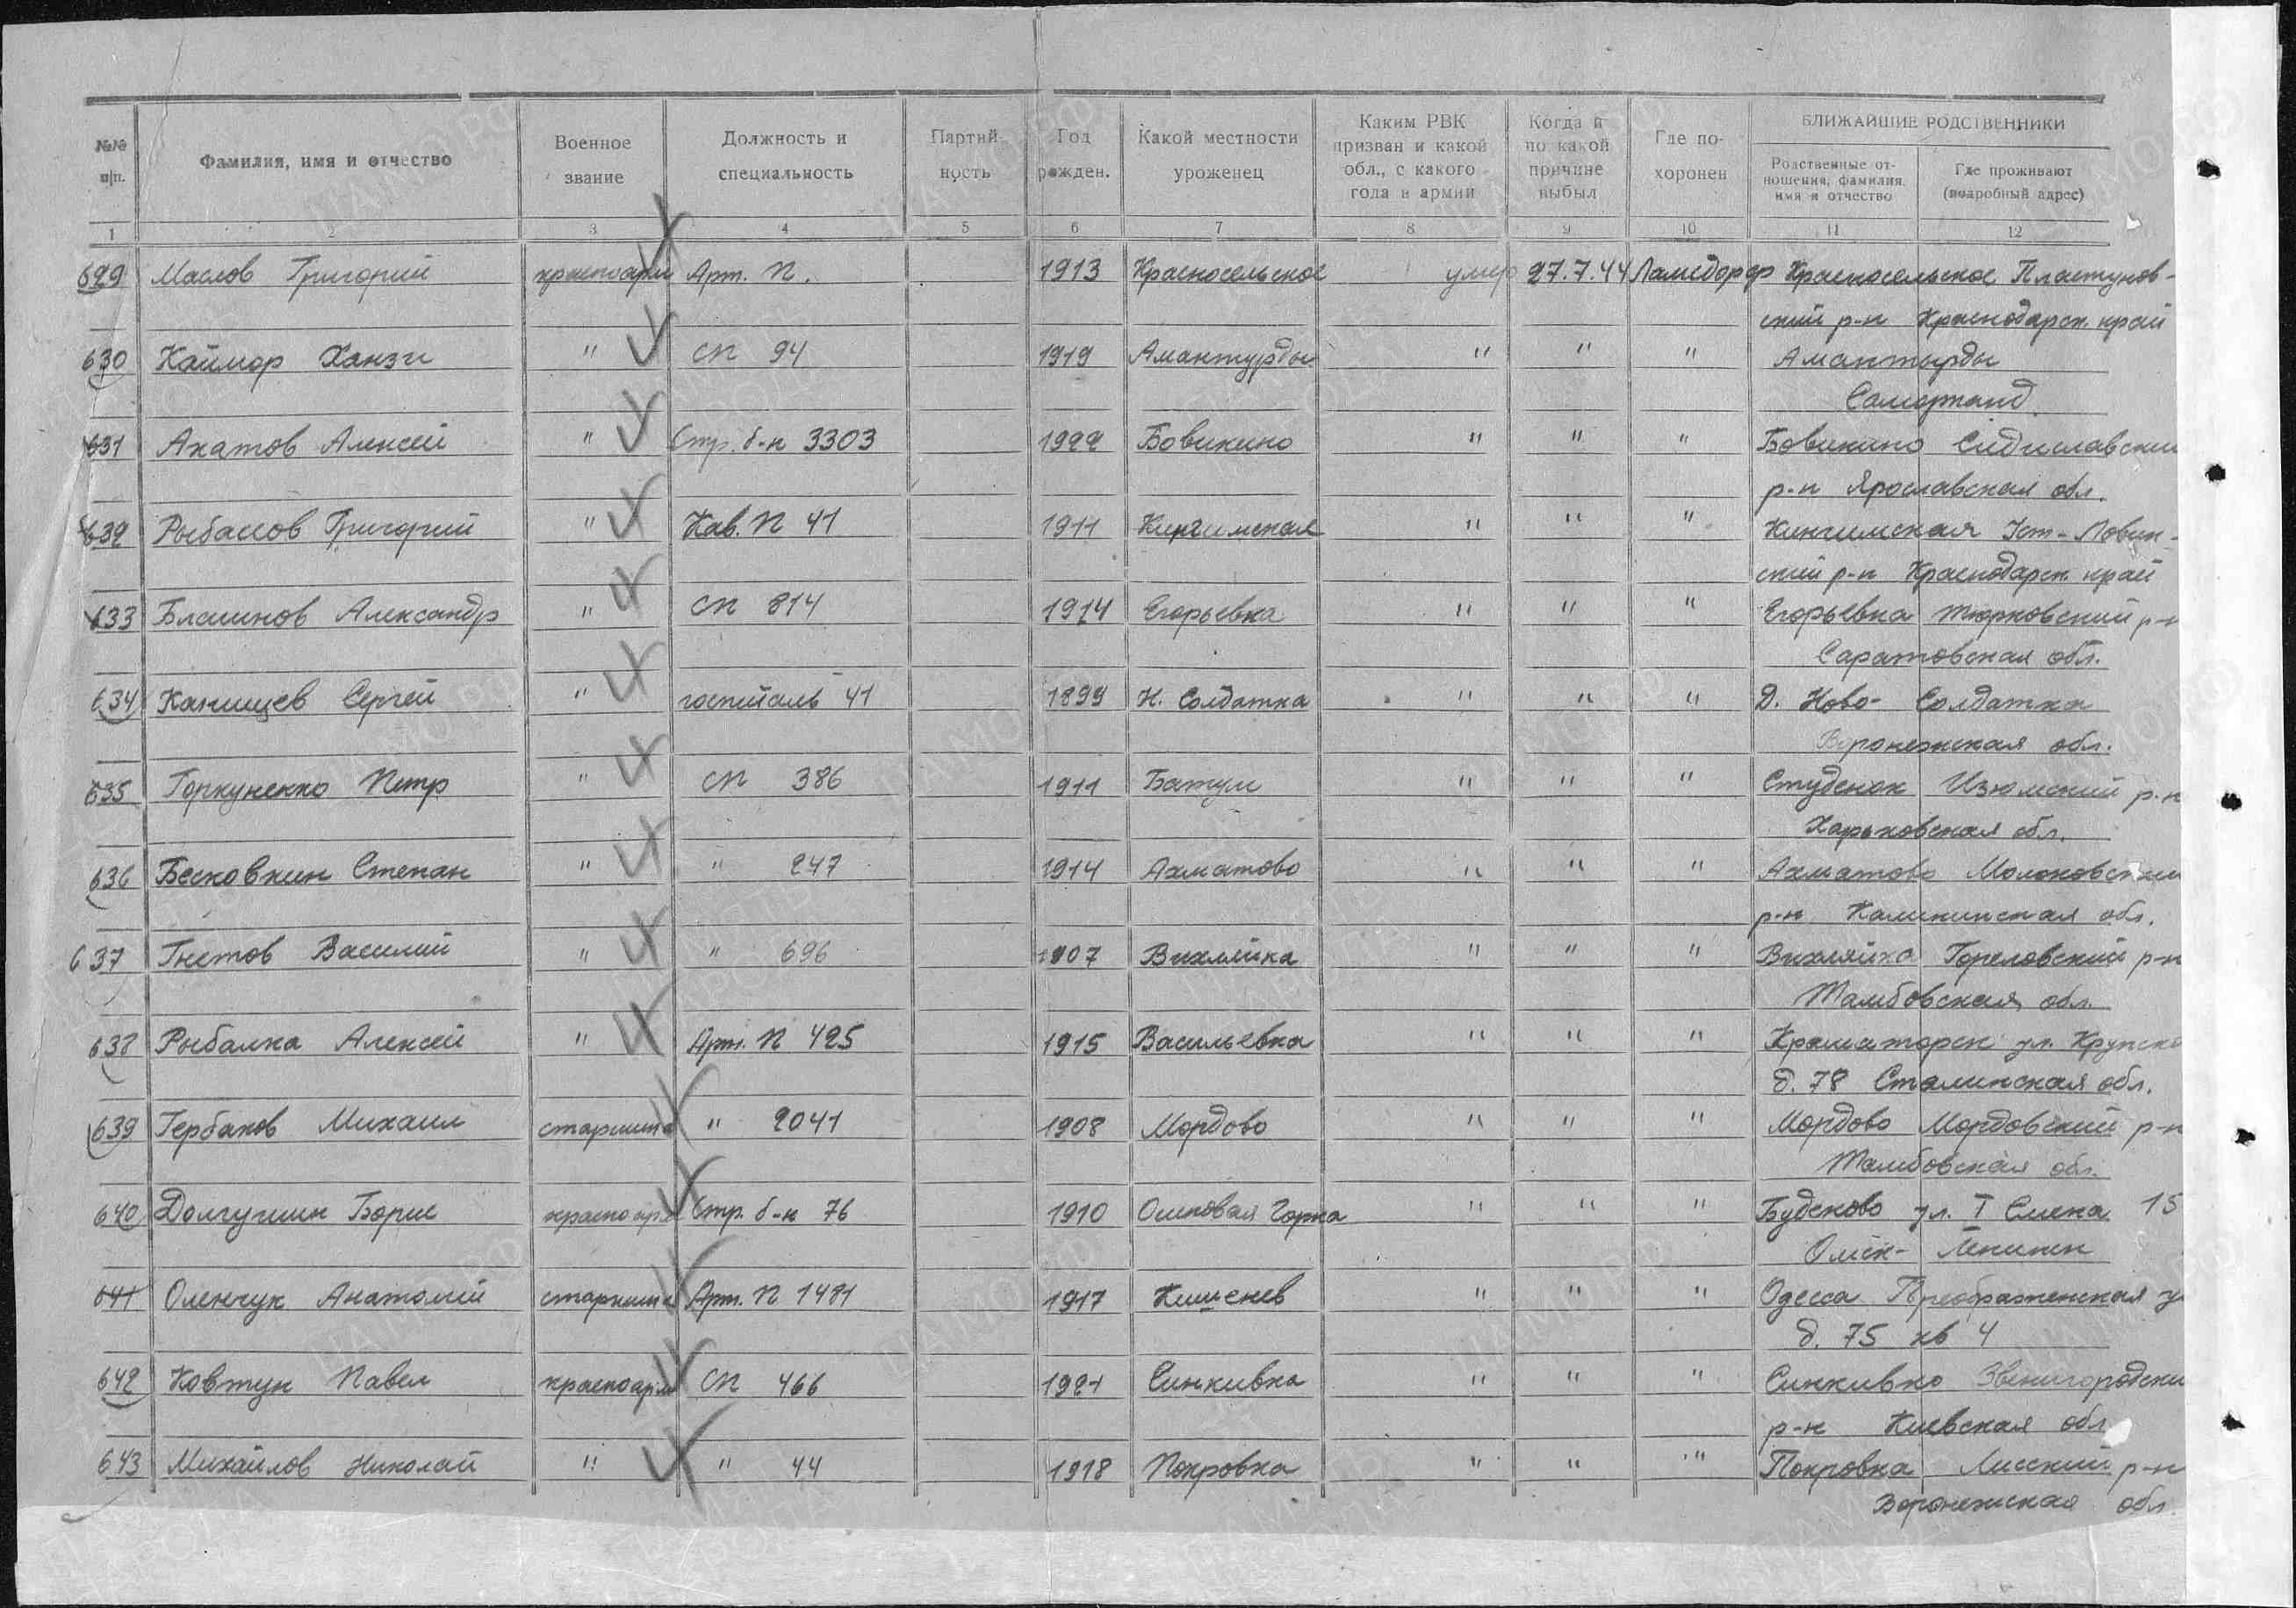 №№ п/п.
Фамилия, имя и отчество
Военное звание
Должность и специальность
Партий-ность
Год рожден.
Какой местности уроженец
Каким РВК призван и какой обл., с какого года в армии
Когда и по какой причине выбыл
Где по-хоронен
БЛИЖАЙШИЕ РОДСТВЕННИКИ
Родственные от-ношения, фамилия, имя и отчество
Где проживают (подробный адрес)
1 2 3 4 5 6 7 8 9 10 11 12
629 Маслов Григорий красноарм Арт. П. 1913 Красносельское умер 27.7.44 Ламсдорф Красносельское Пластунов-
ский р-н Краснодарск. край
630 Каймор Ханзи " СП 94 1919 Амантурды " " " Амантырды
Самарканд
631 Ахатов Алексей " Стр. б-н 3303 1922 Бовикино " " " Бовикино
р-н Ярославская обл.
632 Рыбасов Григорий " Кав. П 41 1911 " " " Уст-Лабин-
ский р-н Краснодарск. край
633 Блашнов Александр " СП 814 1914 Егорьевка " " " Егорьевка Тюрковский р-н
Саратовская обл.
634 Канищев Сергей " госпиталь 41 1899 Н. Солдатка " " " Д. Ново- Солдатка
Воронежская обл.
635 Горкуненко Петр " СП 386 1911 Батум " " " Студенок Изюмский р-н
Харьковская обл.
636 Бесковкин Степан " " 247 1914 Ахматово " " " Ахматово Молоковский
р-н Калининская обл.
637 Гнетов Василий " " 696 1907 Вихляйка " " " Вихляйка Гореловский р-н
Тамбовская обл.
638 Рыбалка Алексей " Арт. П 425 1915 Васильевка " " " Краматорск ул. Крупск
д. 78 Сталинская обл.
639 Гербаков Михаил старшина " 2041 1908 Мордово " " " Мордово Мордовский р-н
Тамбовская обл.
640 Долгушин Борис красноарм Стр. б-н 76 1910 Осиновая Горка " " " Буденово ул. I Смена 15
Омск- Ленинск
641 Оленчук Анатолий старшина Арт. П 1481 1917 Кишенев " " " Одесса Преображенская у
д. 75 кв 4
642 Ковтун Павел красноарм СП 466 1921 Синкивка " " " Синкивко Звенигородски
р-н Киевская обл
643 Михайлов Николай " " 44 1918 Покровка " " " Покровка Лисский р-н
Воронежская обл.